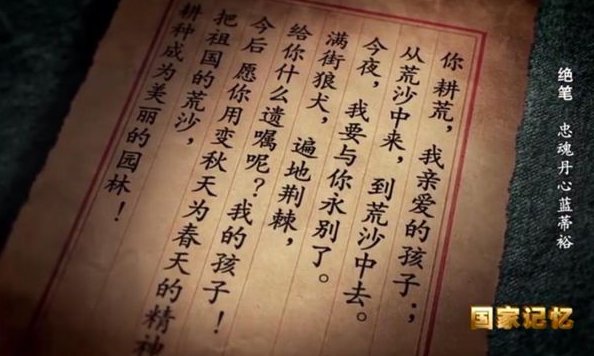 你 耕荒，我亲爱的孩子；
从荒沙中来，到荒沙中去。
今夜，我要与你永别了。
满街狼犬，遍地荆棘，
给你什么遗嘱呢？我的孩子！
今后 愿你用变秋天为春天的精神
把祖国的荒沙，
耕种成为美丽的园林！
绝笔 忠魂丹心蓝蒂裕
国家记忆